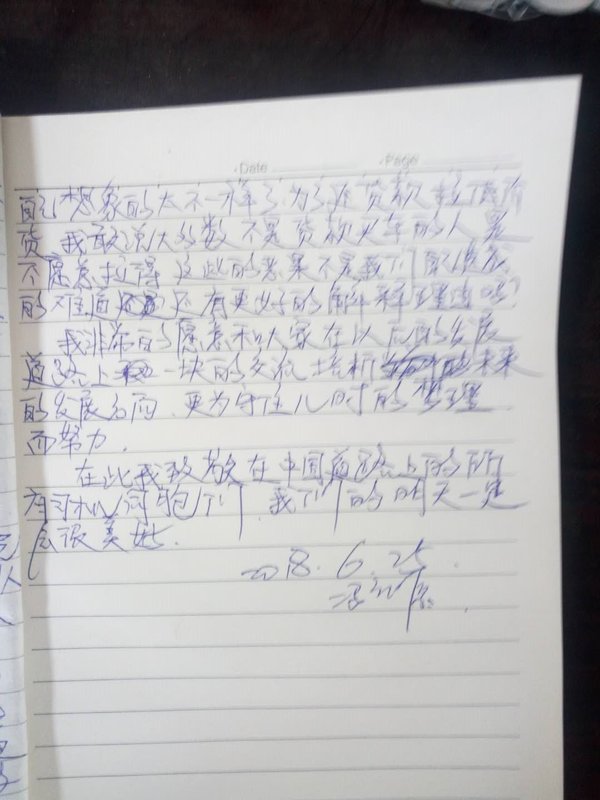 Date Page
想象的太不一样了为了还贷款拉低价
货.我敢说大多数不是贷款买车的人是
不愿意拉得 这些的恶果不是我们
的难道还有更好的解释理由吗?
我非常的愿意和大家在以后的发展
道路上一块的交流探析未来
的发展方向.更为守住儿时的梦想
而努力.
在此我致敬在中国道路上的所
有司机同胞们.我们的明天一定
会很美好.
2018.6.25.